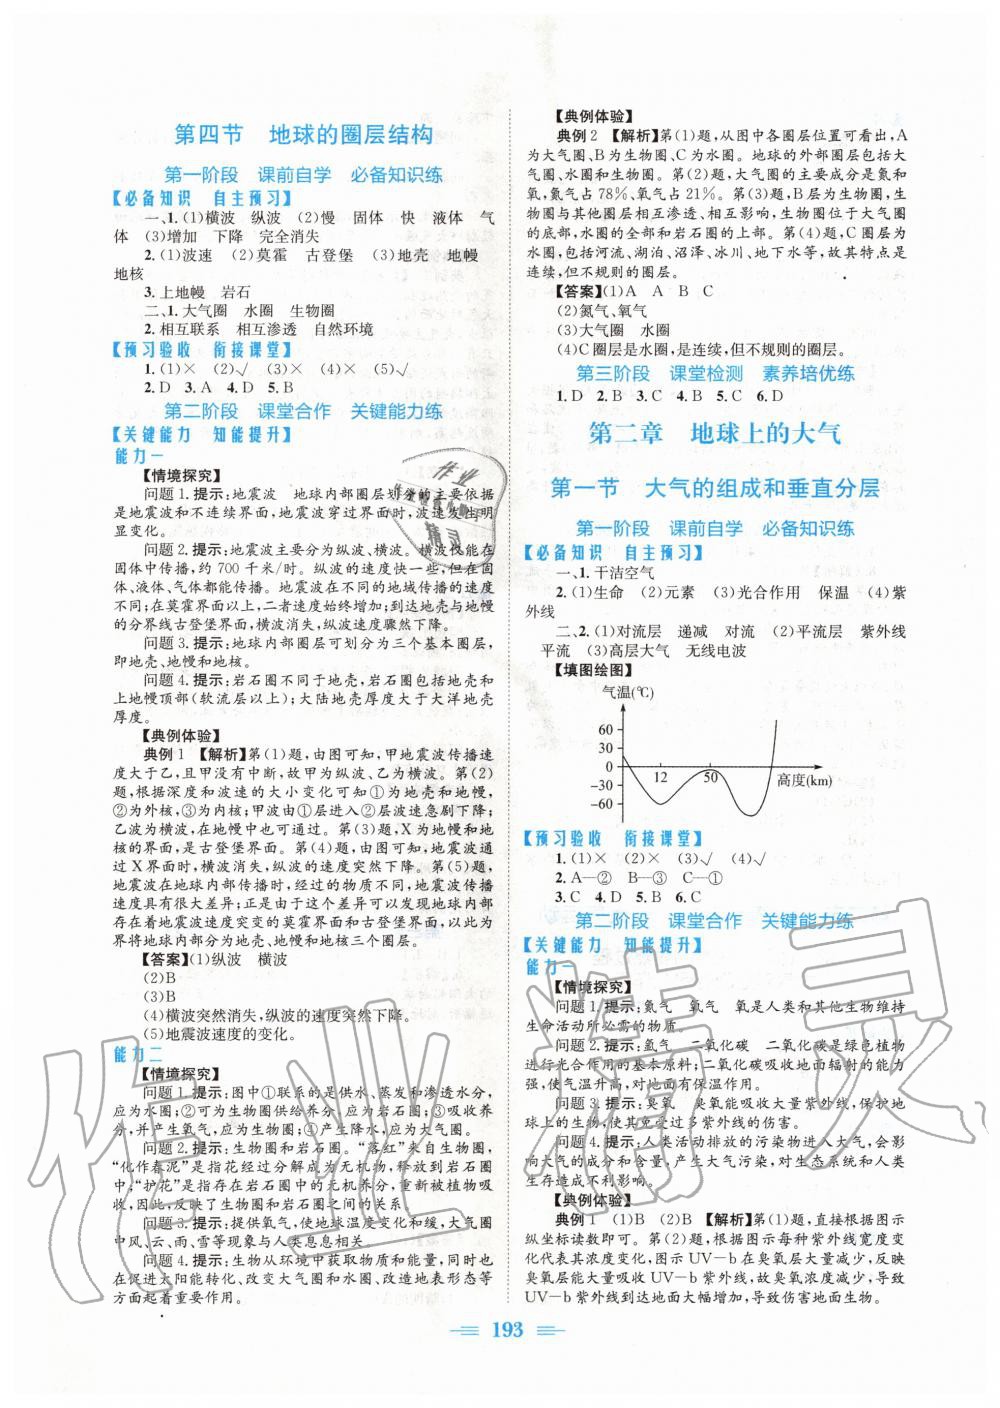 第四节　地球的圈层结构
第一阶段　课前自学　必备知识练
【必备知识　自主预习】
一、1.(1)横波　纵波　(2)慢　固体　快　液体　气
体　(3)增加　下降　完全消失
2.(1)波速　(2)莫霍　古登堡　(3)地壳　地幔
地核
3.上地幔　岩石
二、1.大气圈　水圈　生物圈
2.相互联系　相互渗透　自然环境
【预习验收　衔接课堂】
1.(1)×　(2)√　(3)×　(4)×　(5)√
2.D　3.A　4.D　5.B
第二阶段　课堂合作　关键能力练
【关键能力　知能提升】
能力一
【情境探究】
问题1.提示:地震波　地球内部圈层划分的主要依据
是地震波和不连续界面,地震波穿过界面时,波速发生明
显变化。
问题2.提示:地震波主要分为纵波、横波。横波仅能在
固体中传播,约700千米/时。纵波的速度快一些,但在固
体、液体、气体都能传播。地震波在不同的地域传播的速度
不同;在莫霍界面以上,二者速度始终增加;到达地壳与地幔
的分界线古登堡界面,横波消失,纵波速度骤然下降。
问题3.提示:地球内部圈层可划分为三个基本圈层,
即地壳、地幔和地核。
问题4.提示:岩石圈不同于地壳,岩石圈包括地壳和
上地幔顶部(软流层以上);大陆地壳厚度大于大洋地壳
厚度。
【典例体验】
典例1　【解析】第(1)题,由图可知,甲地震波传播速
度大于乙,且甲没有中断,故甲为纵波、乙为横波。第(2)
题,根据深度和波速的大小变化可知①为地壳和地幔,
②为外核,③为内核;甲波由①层进入②层波速急剧下降;
乙波为横波,在地幔中也可通过。第(3)题,X为地幔和地
核的界面,是古登堡界面。第(4)题,由图可知,地震波通
过X界面时,横波消失,纵波的速度突然下降。第(5)题,
地震波在地球内部传播时,经过的物质不同,地震波传播
速度具有很大差异;正是由于这个差异可以发现地球内部
存在着地震波速度突变的莫霍界面和古登堡界面,以此为
界将地球内部分为地壳、地幔和地核三个圈层。
【答案】(1)纵波　横波
(2)B
(3)B
(4)横波突然消失,纵波的速度突然下降。
(5)地震波速度的变化。
能力二
【情境探究】
问题1.提示:图中①联系的是供水、蒸发和渗透水分,
应为水圈;②可为生物圈供给养分,应为岩石圈;③吸收养
分,并产生氧气,应为生物圈;④产生降水,应为大气圈。
问题2.提示:生物圈和岩石圈。“落红”来自生物圈,
“化作春泥”是指花经过分解成为无机物,释放到岩石圈
中;“护花”是指存在岩石圈中的无机养分,重新被植物吸
收,因此,反映了生物圈和岩石圈之间的关系。
问题3.提示:提供氧气,使地球温度变化和缓,大气圈
中风、云、雨、雪等现象与人类息息相关。
问题4.提示:生物从环境中获取物质和能量,同时也
在促进太阳能转化、改变大气圈和水圈、改造地表形态等
方面起着重要作用。
【典例体验】
典例2　【解析】第(1)题,从图中各圈层位置可看出,A
为大气圈、B为生物圈、C为水圈。地球的外部圈层包括大
气圈、水圈和生物圈。第(2)题,大气圈的主要成分是氮和
氧,氮气占78%、氧气占21%。第(3)题,B层为生物圈,生
物圈与其他圈层相互渗透、相互影响,生物圈位于大气圈
的底部,水圈的全部和岩石圈的上部。第(4)题,C圈层为
水圈,包括河流、湖泊、沼泽、冰川、地下水等,故其特点是
连续,但不规则的圈层。
【答案】(1)A　A　B　C
(2)氮气、氧气
(3)大气圈　水圈
(4)C圈层是水圈,是连续,但不规则的圈层。
第三阶段　课堂检测　素养培优练
1.D　2.B　3.C　4.B　5.C　6.D
第二章　地球上的大气
第一节　大气的组成和垂直分层
第一阶段　课前自学　必备知识练
【必备知识　自主预习】
一、1.干洁空气
2.(1)生命　(2)元素　(3)光合作用　保温　(4)紫
外线
二、2.(1)对流层　递减　对流　(2)平流层　紫外线
平流　(3)高层大气　无线电波
【填图绘图】
气温(℃)
60
30
0
-30
-60
12　50　高度(km)
【预习验收　衔接课堂】
1.(1)×　(2)×　(3)√　(4)√
2.A—②　B—③　C—①
3.C　4.D　5.B　6.C
第二阶段　课堂合作　关键能力练
【关键能力　知能提升】
能力一
【情境探究】
问题1.提示:氮气　氧气　氧是人类和其他生物维持
生命活动所必需的物质。
问题2.提示:氩气　二氧化碳　二氧化碳是绿色植物
进行光合作用的基本原料;二氧化碳吸收地面辐射的能力
强,使气温升高,对地面有保温作用。
问题3.提示:臭氧　臭氧能吸收大量紫外线,保护地
球上的生物,使其免受过多紫外线的伤害。
问题4.提示:人类活动排放的污染物进入大气,会影
响大气的成分和含量,产生大气污染,对生态系统和人类
生存造成不利影响。
【典例体验】
典例1　(1)B　(2)B　【解析】第(1)题,直接根据图示
纵坐标读数即可。第(2)题,根据图中两条紫外线宽度变
化代表其浓度变化,图示UV-b在臭氧层大量减少,反映
臭氧层能大量吸收UV-b紫外线,故臭氧浓度减少,导致
UV-b紫外线到达地面大幅增加,导致伤害地面生物。
193
作业精灵